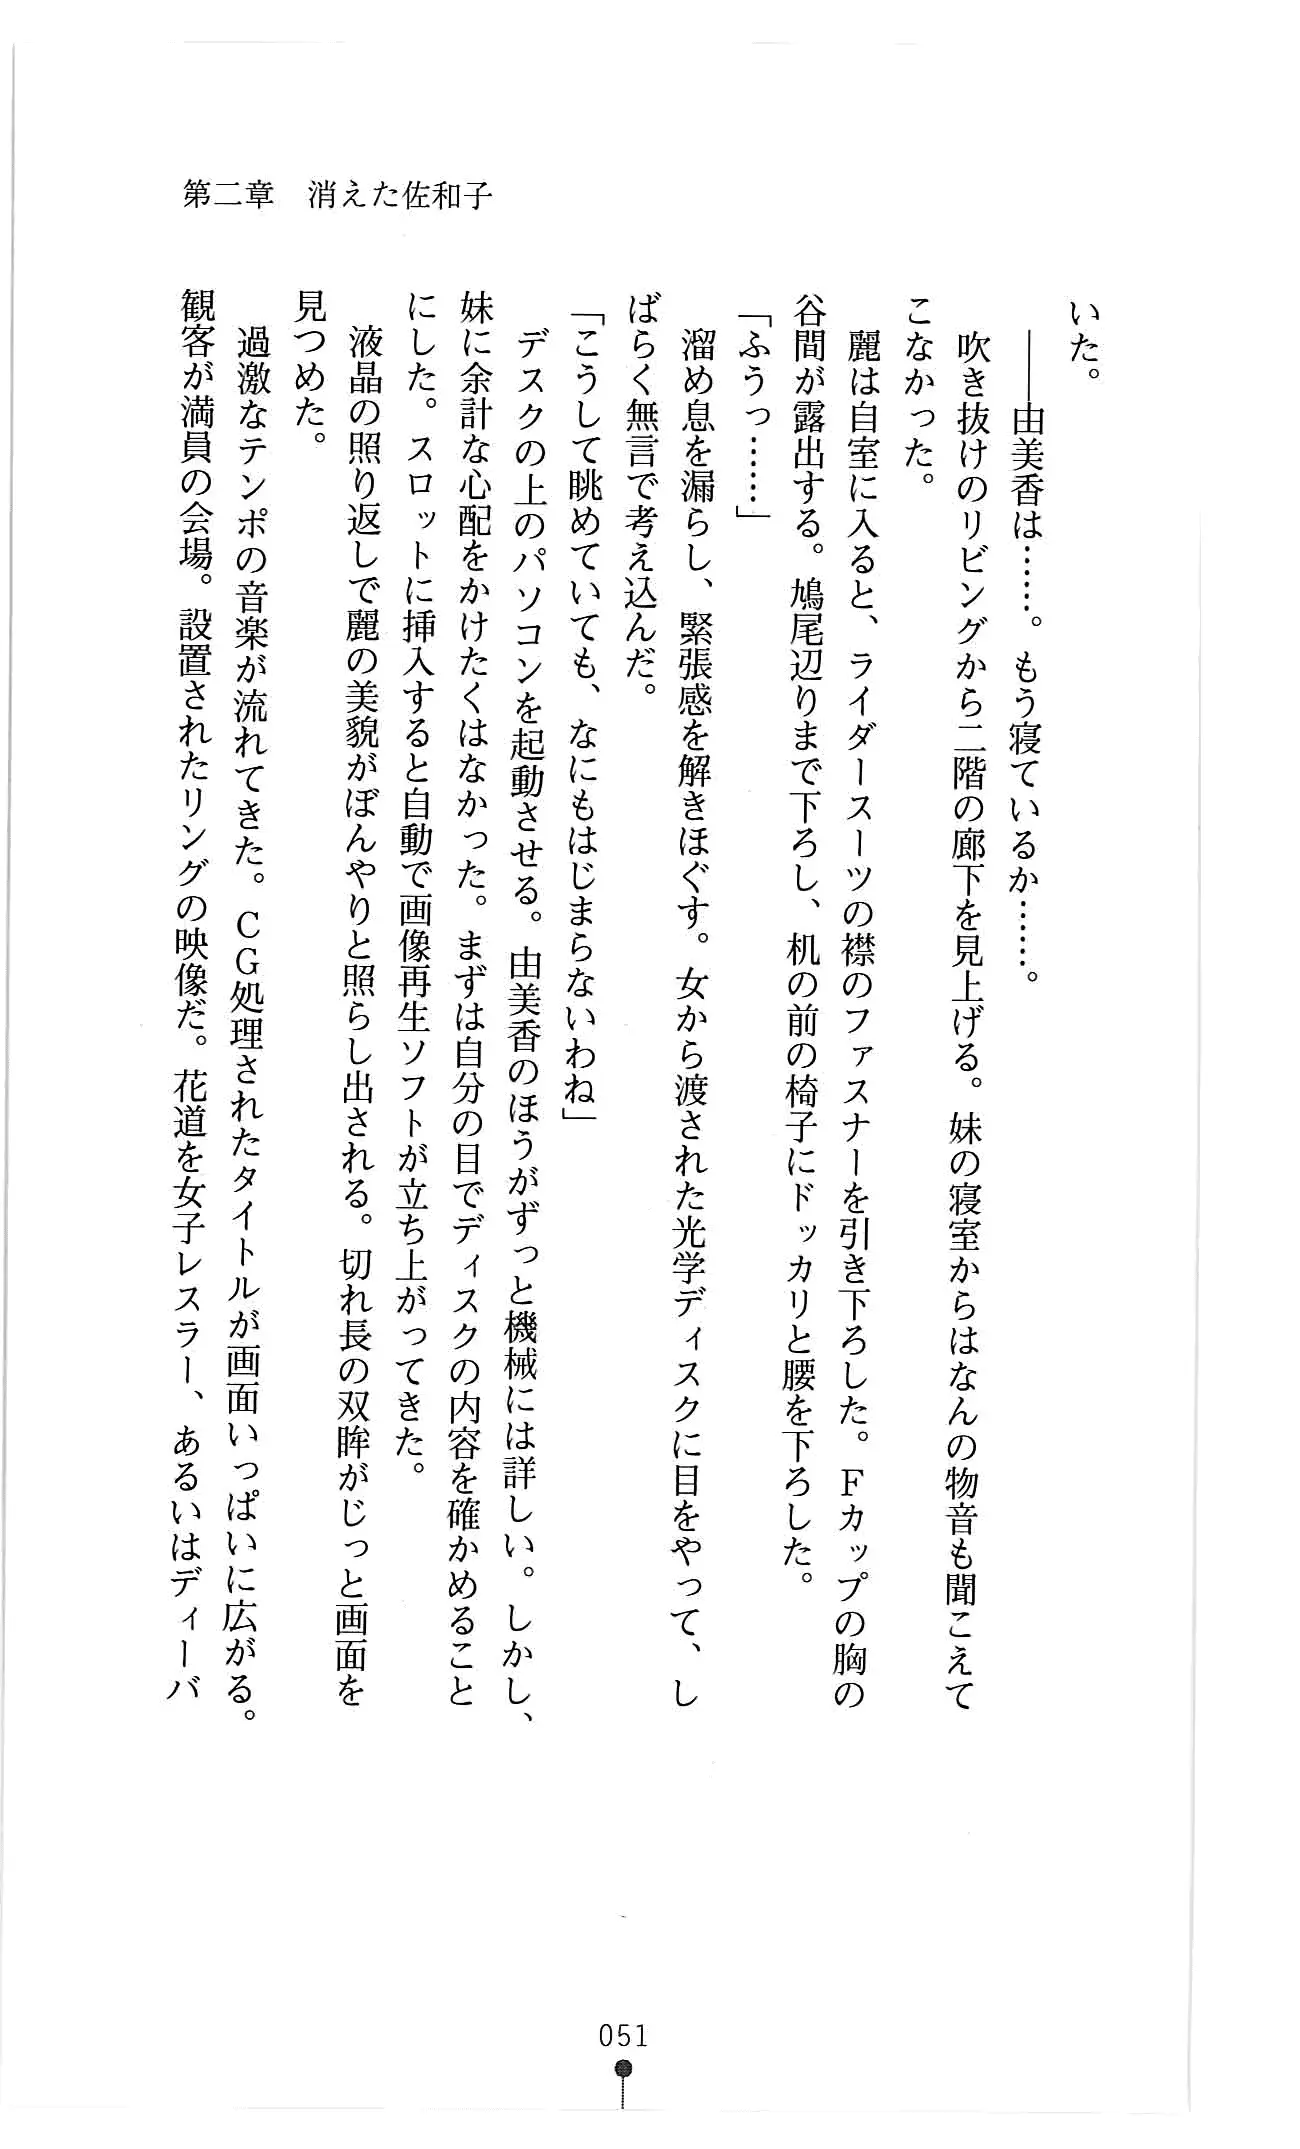 第二章　消えた佐和子
いた。
　――由美香は……。もう寝ているか……。
　吹き抜けのリビングから二階の廊下を見上げる。妹の寝室からはなんの物音も聞こえて
こなかった。
　麗は自室に入ると、ライダースーツの襟のファスナーを引き下ろした。Ｆカップの胸の
谷間が露出する。鳩尾辺りまで下ろし、机の前の椅子にドッカリと腰を下ろした。
「ふうっ……」
　溜め息を漏らし、緊張感を解きほぐす。女から渡された光学ディスクに目をやって、し
ばらく無言で考え込んだ。
「こうして眺めていても、なにもはじまらないわね」
　デスクの上のパソコンを起動させる。由美香のほうがずっと機械には詳しい。しかし、
妹に余計な心配をかけたくはなかった。まずは自分の目でディスクの内容を確かめること
にした。スロットに挿入すると自動で画像再生ソフトが立ち上がってきた。
　液晶の照り返しで麗の美貌がぼんやりと照らし出される。切れ長の双眸がじっと画面を
見つめた。
　過激なテンポの音楽が流れてきた。ＣＧ処理されたタイトルが画面いっぱいに広がる。
観客が満員の会場。設置されたリングの映像だ。花道を女子レスラー、あるいはディーバ
051